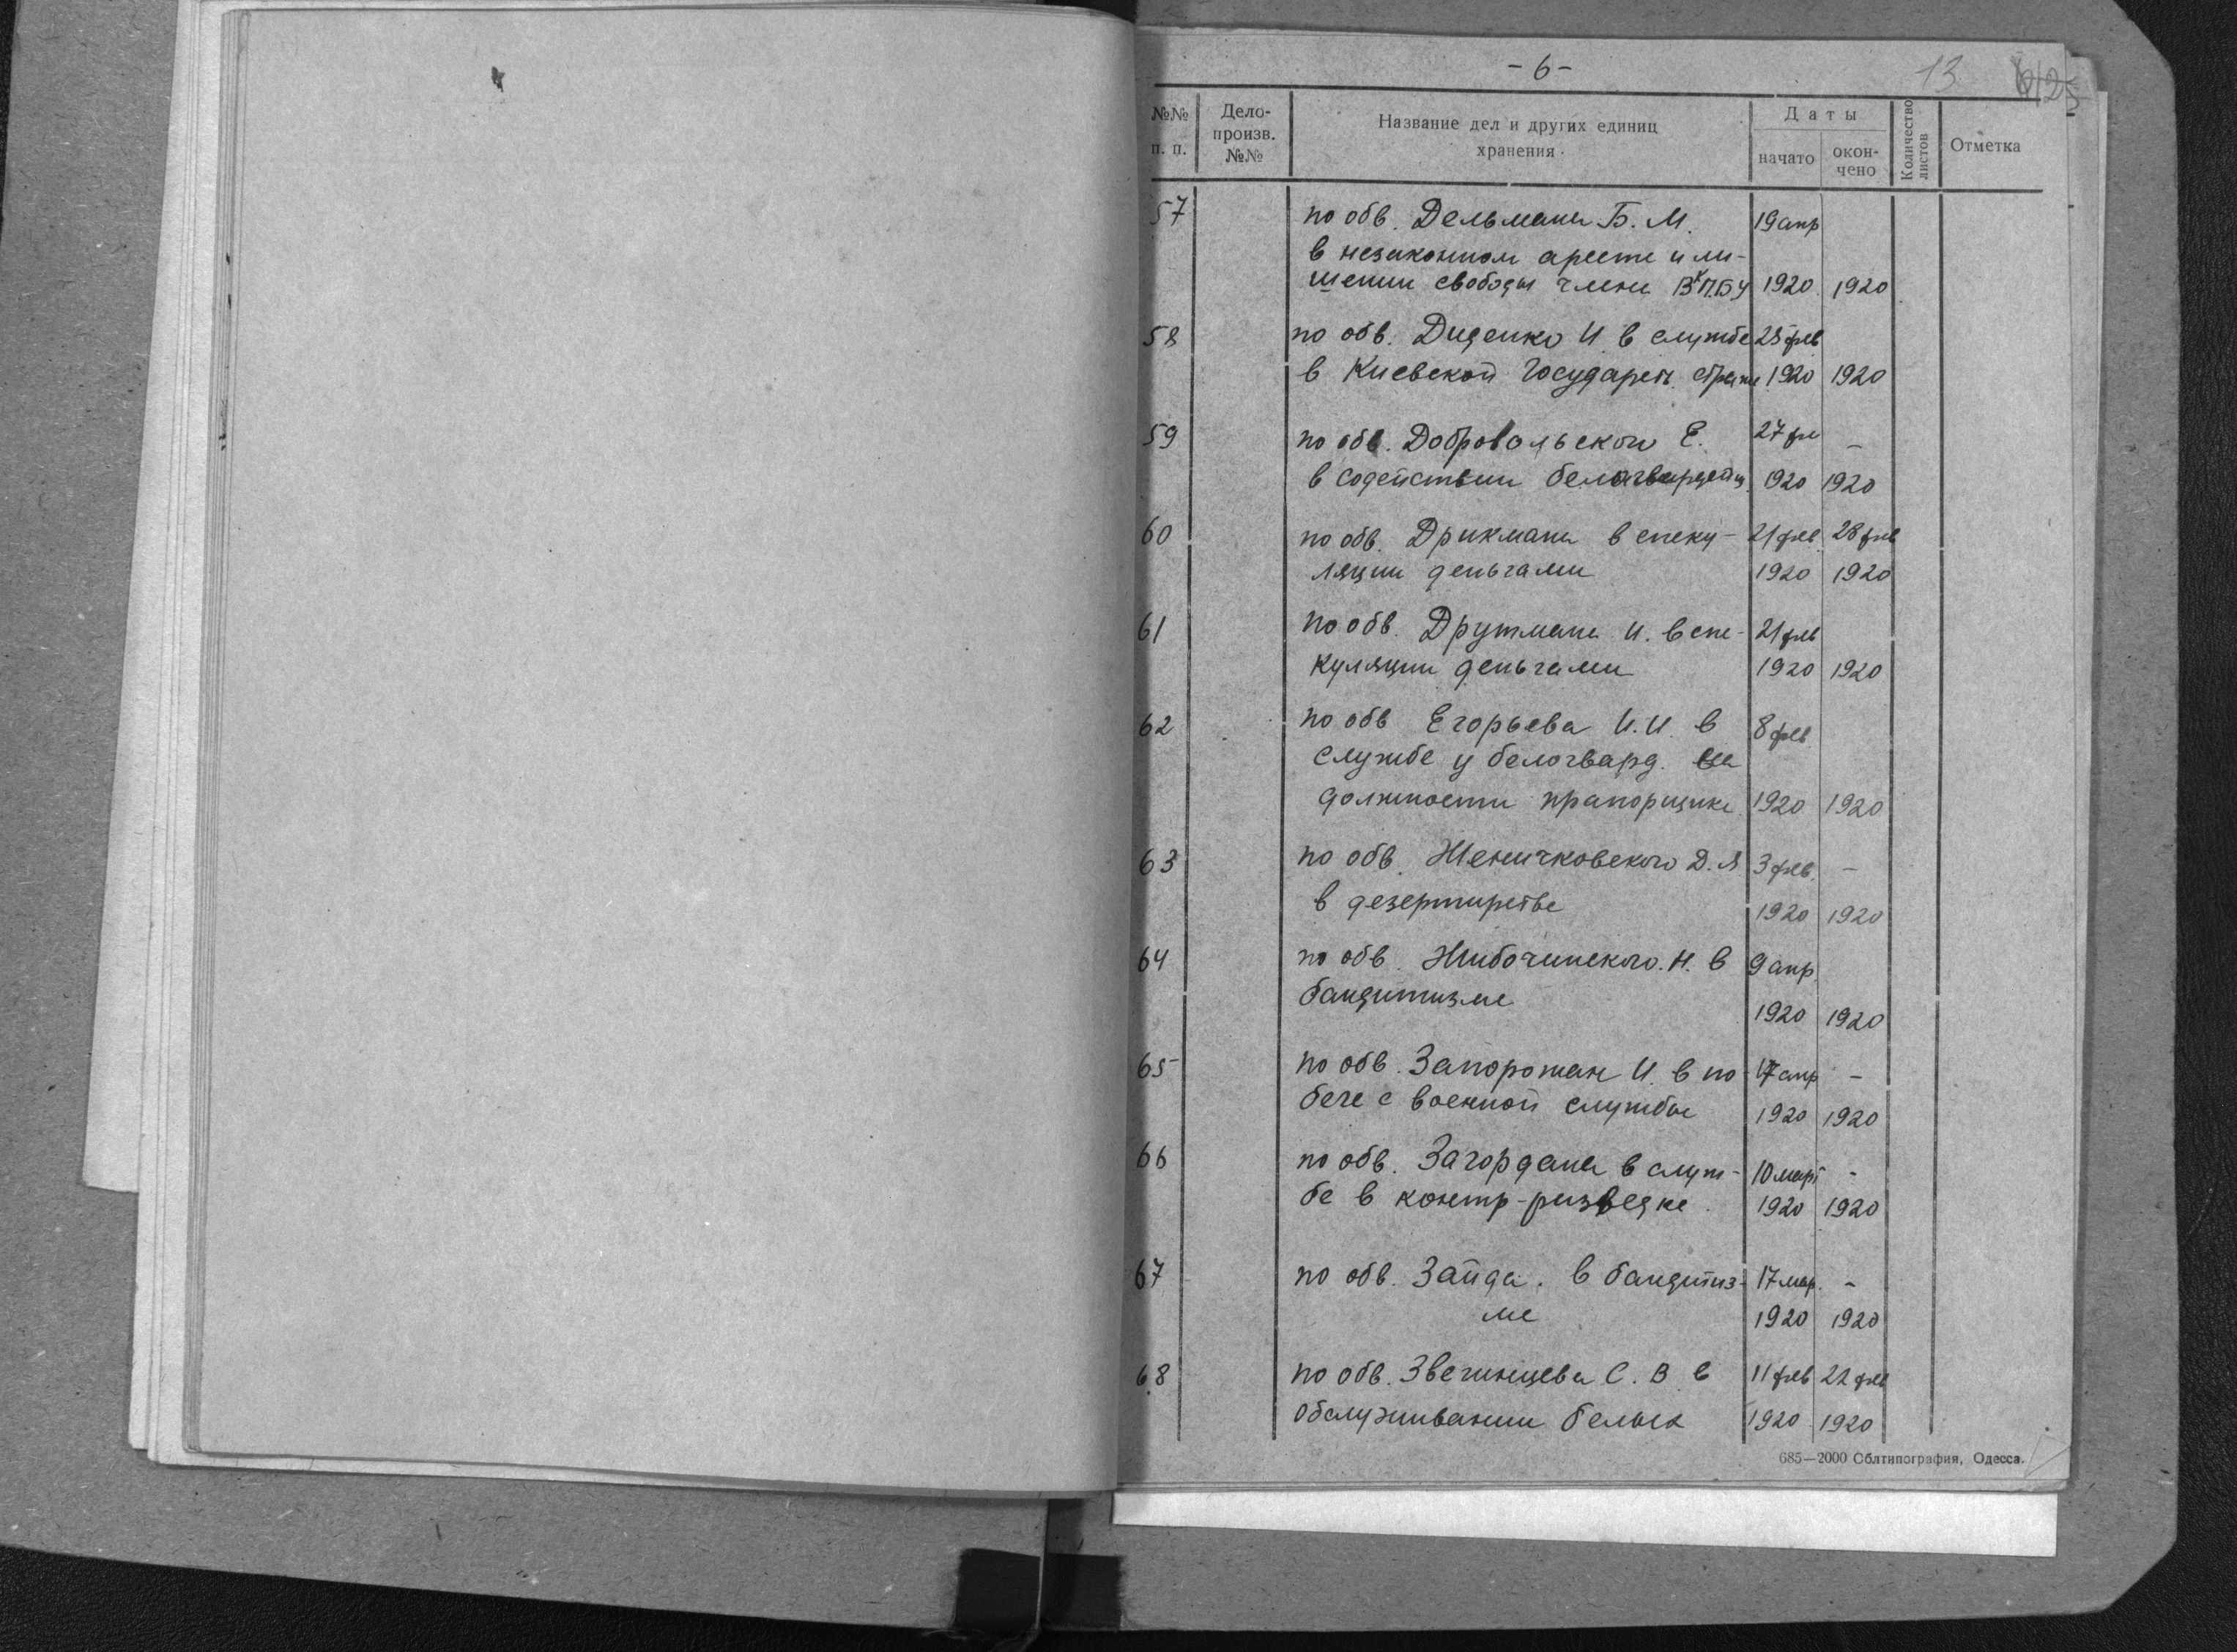 - 6 -
13
№№ п. п.
Дело-произв. №№
Название дел и других единиц хранения
Даты
начато
окон-чено
Количество листов
Отметка
57 по обв. Дельмана Б. М. 19 апр
в незаконном аресте и ли-
шении свободы члена 1920 1920
58 по обв. Диденко И. в службе 23 фев
в Киевской Государств. страже 1920 1920
59 по обв. Добровольского Е. 27 фев –
в содействии белогвардейц. 1920 1920
60 по обв. Дрикмана в спеку- 21 фев. 28 фев
ляции деньгами 1920 1920
61 по обв. Друтмана И. в спе- 21 фев
куляции деньгами 1920 1920
62 по обв Егорьева И. И. в 8 фев.
службе у белогвард. на
должности прапорщика 1920 1920
63 по обв. Женичковского Д. Я 3 фев. –
в дезертирстве 1920 1920
64 по обв. Жибочинского. Н. в 9 апр
бандитизме
1920 1920
65 по обв. Запорожан И. в по- 17 апр –
беге с военной службы 1920 1920
66 по обв. Загордана в служ- 10 март -
бе в контр-разведке. 1920 1920
67 по обв. Зайда. в бандитиз- 17 мар. –
ме 1920 1920
68 по обв. Звегинцева С. В. в 11 фев 22 фев
обслуживании белых 1920 1920
685—2000 Облтипография, Одесса.